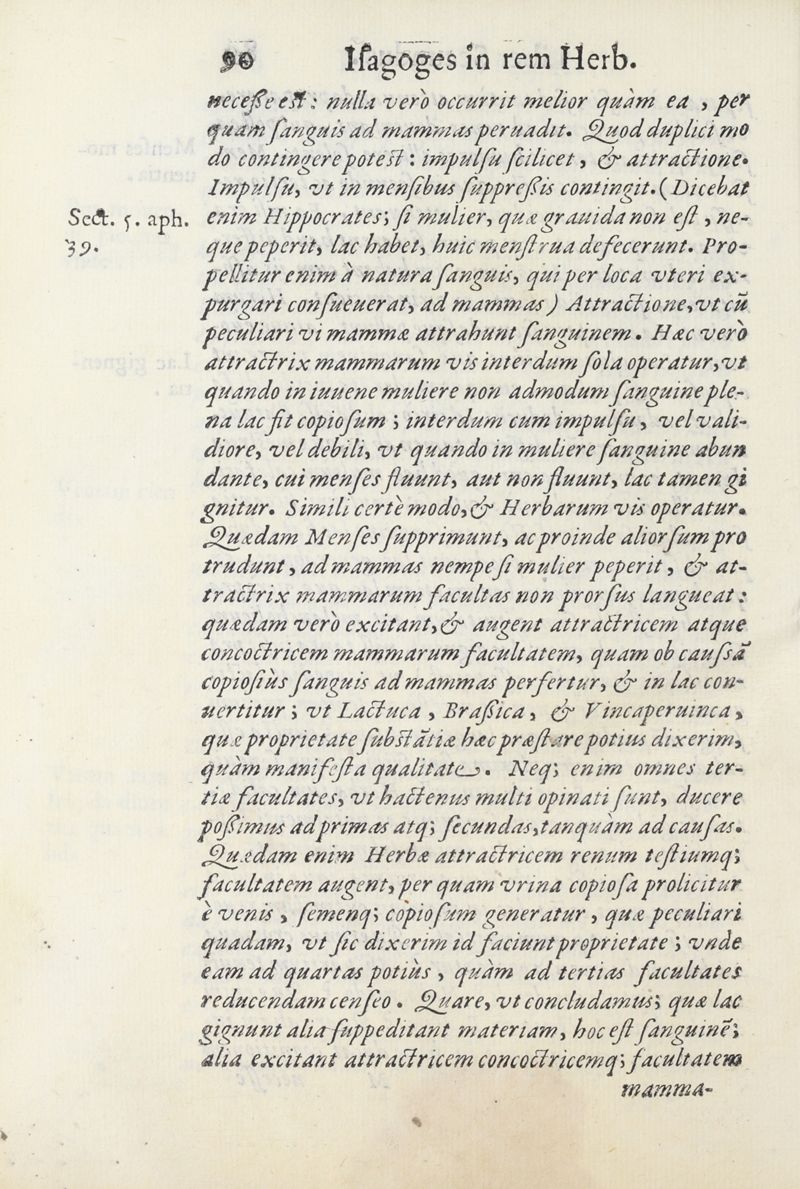 90 Isagoges in rem Herb.
necesse est: nulla verò occurrit melior quàm ea, per
quam sanguis ad mammas peruadit. Quod duplici mo
do contingere potest: impulsu scilicet, & attractione.
Impulsu, vt in mensibus suppressis contingit. (Dicebat
Sect. 5. aph.
39.
enim Hippocrates; si mulier, quæ grauida non est, ne-
que peperit, lac habet, huic menstrua defecerunt. Pro-
pellitur enim à natura sanguis, qui per loca vteri ex-
purgari consueuerat, ad mammas) Attractione, vt cũ
peculiari vi mammæ attrahunt sanguinem. Hæc verò
attractrix mammarum vis interdum sola operatur, vt
quando in iuuene muliere non admodum sanguine ple-
na lac fit copiosum; interdum cum impulsu, vel vali-
diore, vel debili, vt quando in muliere sanguine abun
dante, cui menses fluunt, aut non fluunt, lac tamen gi
gnitur. Simili certè modo, & Herbarum vis operatur.
Quædam Menses supprimunt, ac proinde aliorsum pro
trudunt, ad mammas nempe si mulier peperit, & at-
tractrix mammarum facultas non prorsus langueat:
quædam verò excitant, & augent attractricem atque
concoctricem mammarum facultatem, quam ob caussã
copiosiùs sanguis ad mammas perfertur, & in lac con-
uertitur; vt Lactuca, Brassica, & Vincaperuinca,
quæ proprietate substãtiæ hæc præstare potius dixerim,
quàm manifesta qualitate. Neq; enim omnes ter-
tiæ facultates, vt hactenus multi opinati sunt, ducere
possimus ad primas atq; secundas, tanquàm ad causas.
Quædam enim Herbæ attractricem renum testiumq;
facultatem augent, per quam vrina copiosa prolicitur
è venis, semenq; copiosum generatur, quæ peculiari
quadam, vt sic dixerim id faciunt proprietate; vnde
eam ad quartas potiùs, quàm ad tertias facultates
reducendam censeo. Quare, vt concludamus; quæ lac
gignunt alia suppeditant materiam, hoc est sanguinẽ;
alia excitant attractricem concoctricemq; facultatem
mamma-